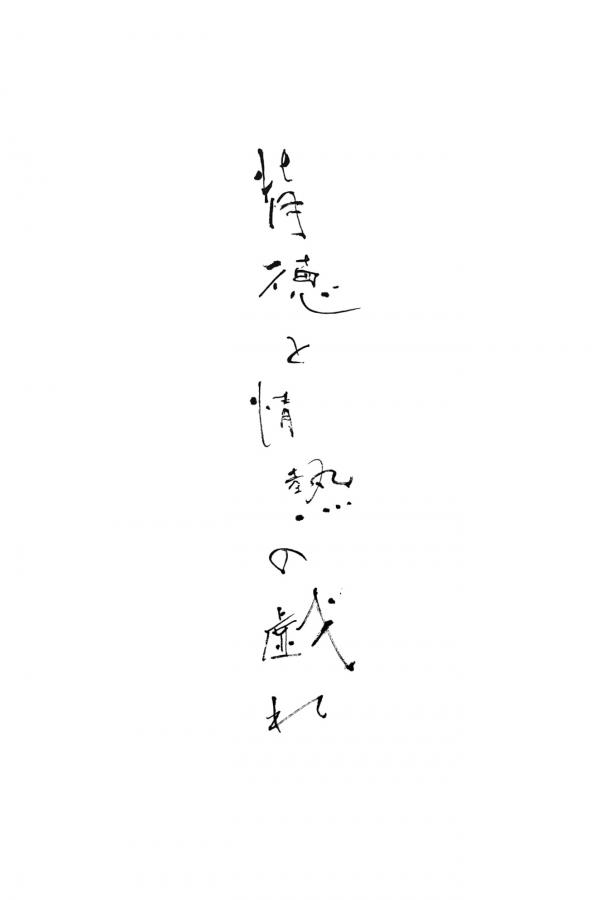 背徳と情熱の戯れ